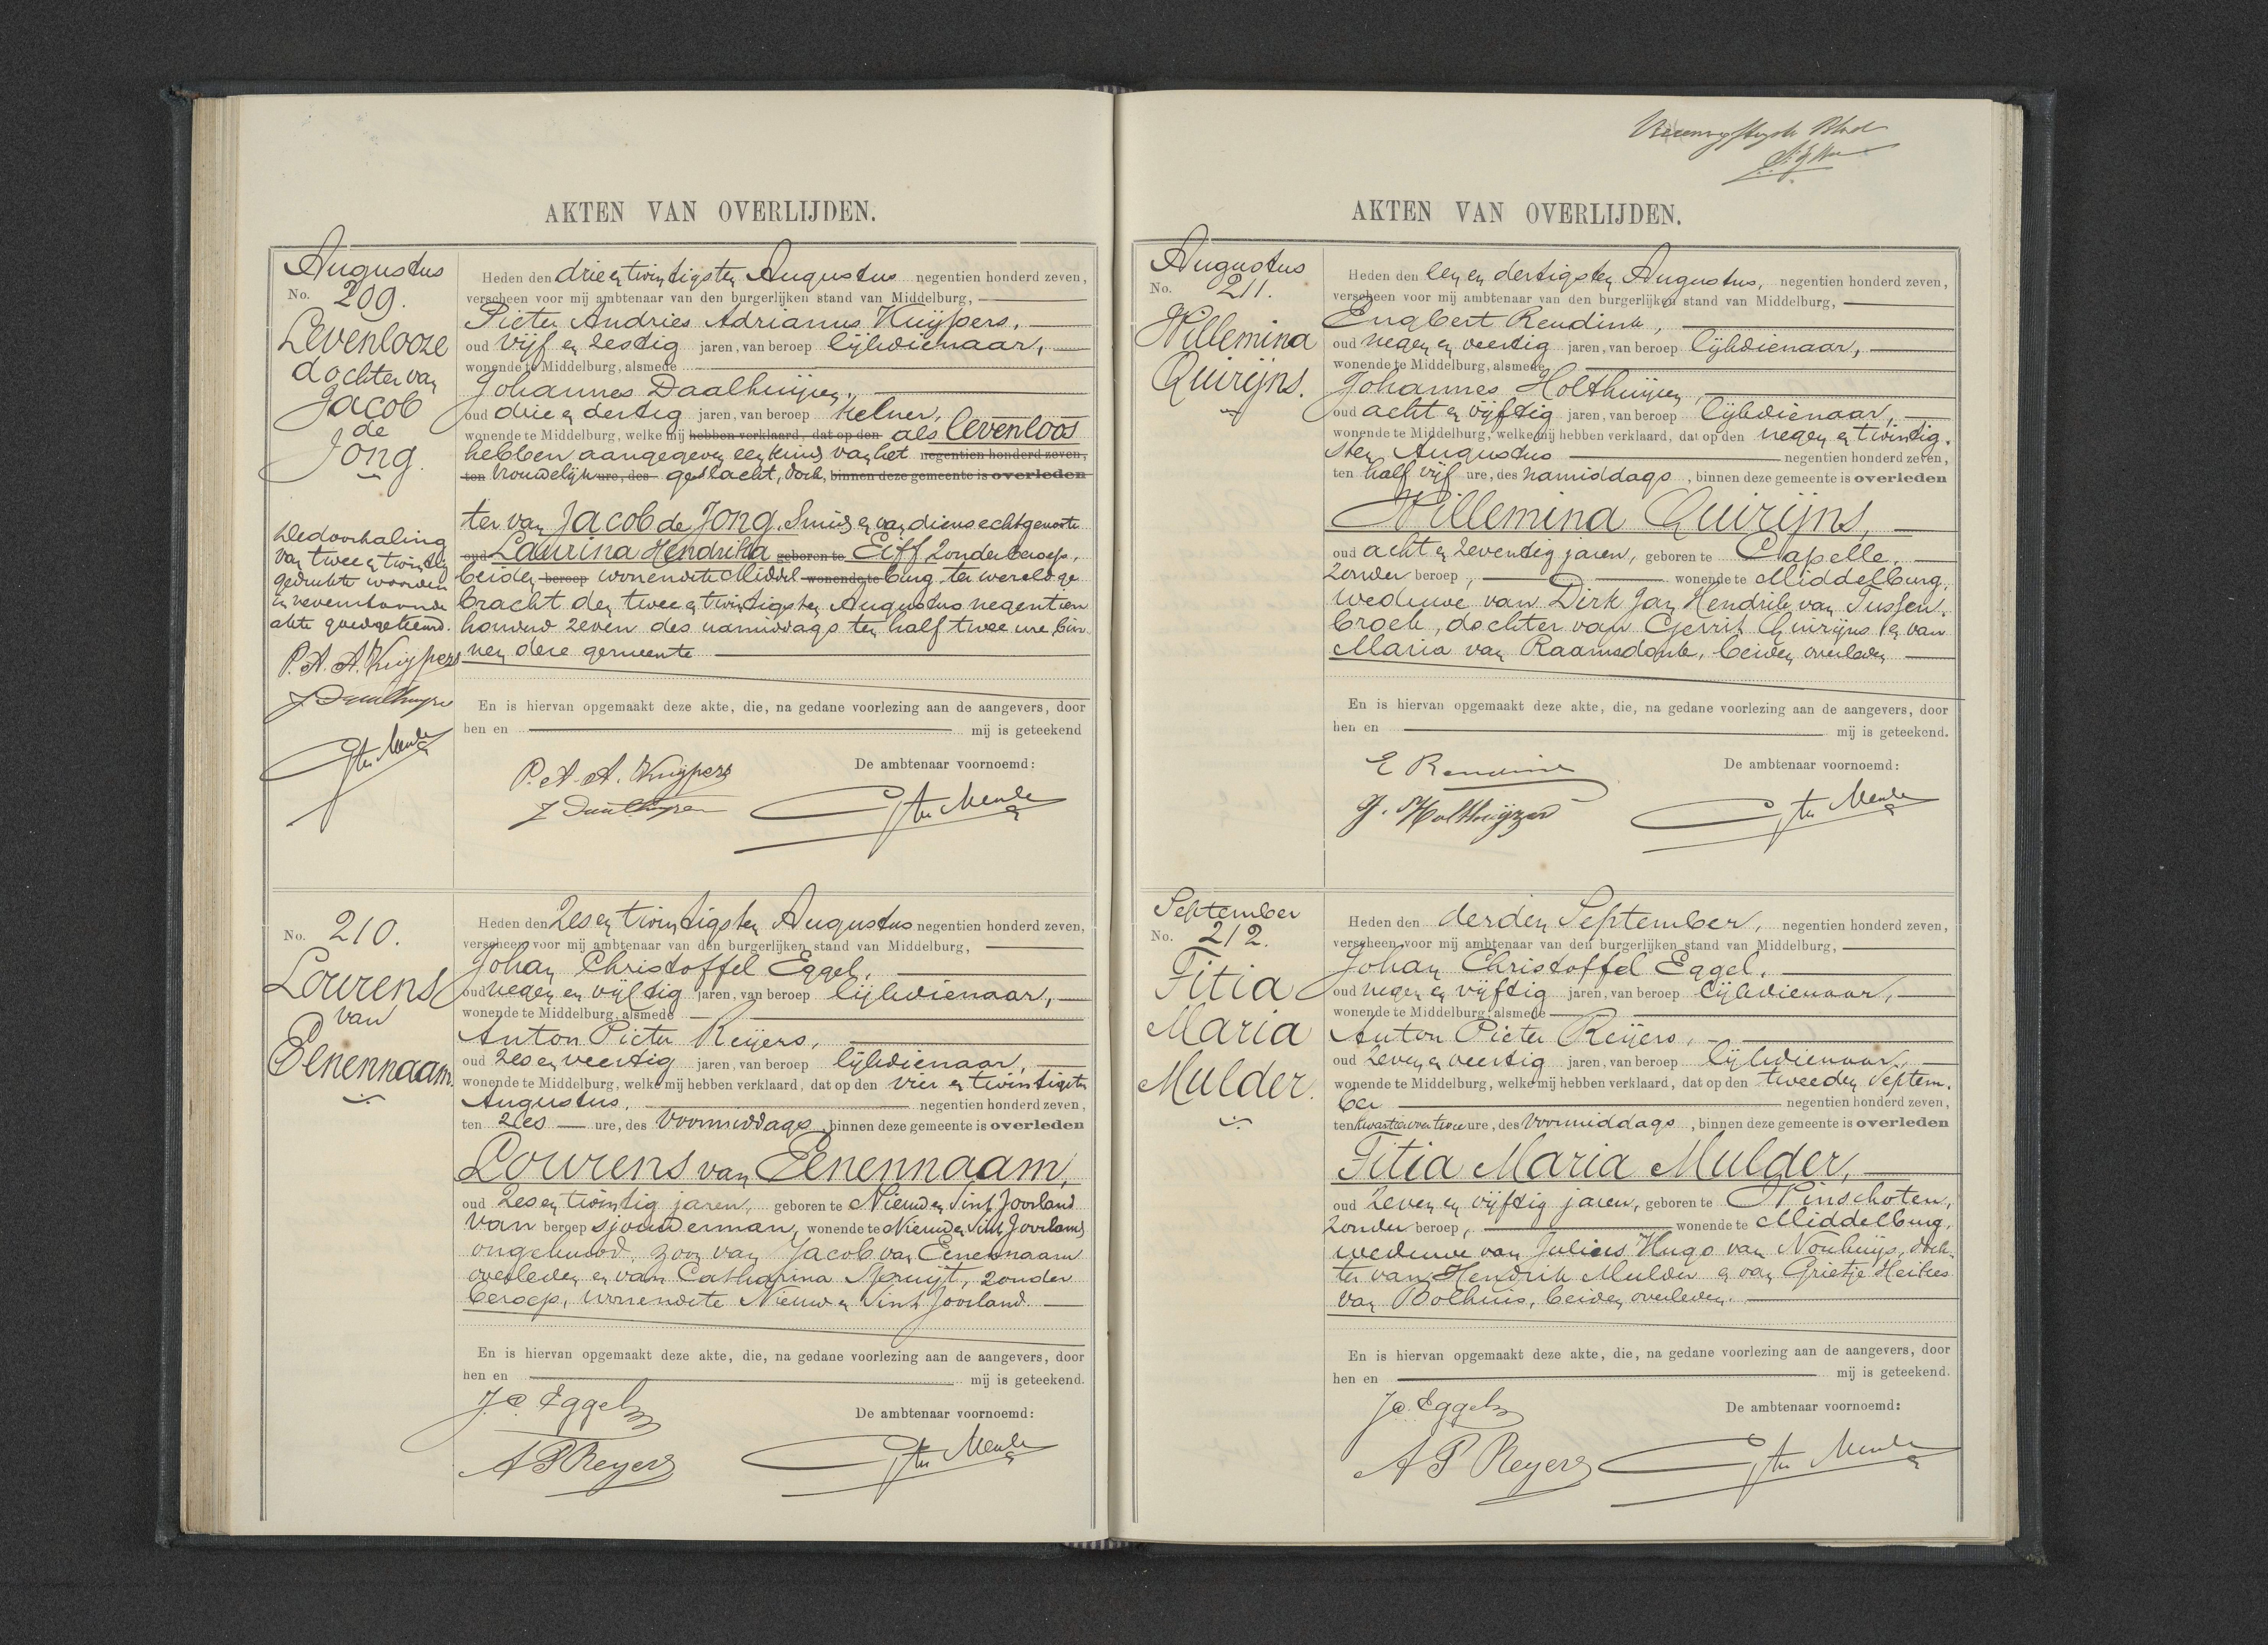 AKTEN VAN OVERLIJDEN.
Augustus
No. 209.
Levenlooze
dochter van
Jacob
de
Jong.
De doorhaling
van twee en twintig
gedrukte woorden
in nevenstaande
akte goedgekeurd.
P. A. A. Kuijpers
J Daalhuijzen
Heden den drie en twintigsten Augustus negentien honderd zeven,
verscheen voor mij ambtenaar van den burgerlijken stand van Middelburg,
Pieter Andries Adrianus Kuijpers,
oud vijf en zestig jaren, van beroep lijkdienaar,
wonende te Middelburg, alsmede
Johannes Daalhuijzen,
oud drie en dertig jaren, van beroep kelner,
wonende te Middelburg, welke mij hebben verklaard, dat op den als levenloos
hebben aangegeven een kind van het negentien honderd zeven,
ten vrouwelijk ure, des geslacht, doch, binnen deze gemeente is overleden
ter van Jacob de Jong, smid en van diens echtgenoote
oud Laurina Hendrika geboren te Eiff, zonder beroep,
beiden beroep wonende te Middel wonende te burg, ter wereld ge
bracht den twee en twintigsten Augustus negentien
honderd zeven des namiddags ten half twee ure bin
nen deze gemeente
En is hiervan opgemaakt deze akte, die, na gedane voorlezing aan de aangevers, door
hen en mij is geteekend
De ambtenaar voornoemd:
P. A. A. Kuijpers
J Daalhuijzen
No. 210.
Lourens
van
Eenennaam.
Heden den zes en twintigsten Augustus negentien honderd zeven,
verscheen voor mij ambtenaar van den burgerlijken stand van Middelburg,
Johan Christoffel Eggel,
oud negen en vijftig jaren, van beroep lijkdienaar,
wonende te Middelburg, alsmede
Anton Pieter Reijers,
oud zes en veertig jaren, van beroep lijkdienaar,
wonende te Middelburg, welke mij hebben verklaard, dat op den vier en twintigsten
Augustus, negentien honderd zeven,
ten zes ure, des voormiddags, binnen deze gemeente is overleden
Lourens van Eenennaam,
oud zes en twintig jaren, geboren te Nieuw en Sint Joosland
van beroep sjouwerman, wonende te Nieuw en Sint Joosland
ongehuwd, zoon van Jacob van Eenennaam
overleden en van Catharina Spruijt, zonder
beroep, wonende te Nieuw en Sint Joosland
En is hiervan opgemaakt deze akte, die, na gedane voorlezing aan de aangevers, door
hen en mij is geteekend.
De ambtenaar voornoemd:
J C Eggel
A P Reyers
AKTEN VAN OVERLIJDEN.
Augustus
No. 211.
Willemina
Quirijns.
Heden den een en dertigsten Augustus, negentien honderd zeven,
verscheen voor mij ambtenaar van den burgerlijken stand van Middelburg,
Engbert Rendink,
oud negen en veertig jaren, van beroep lijkdienaar,
wonende te Middelburg, alsmede
Johannes Holthuijzen,
oud acht en vijftig jaren, van beroep lijkdienaar,
wonende te Middelburg, welke mij hebben verklaard, dat op den negen en twintig-
sten Augustus negentien honderd zeven,
ten half vijf ure, des namiddags, binnen deze gemeente is overleden
Willemina Quirijns,
oud acht en zeventig jaren, geboren te Capelle,
zonder beroep, wonende te Middelburg,
weduwe van Dirk Jan Hendrik van Tussen-
broek, dochter van Gerrit Quirijns en van
Maria van Raamsdonk, beiden overleden
En is hiervan opgemaakt deze akte, die, na gedane voorlezing aan de aangevers, door
hen en mij is geteekend.
De ambtenaar voornoemd:
E Rendink
J. Holthuijzen
September
No. 212.
Titia
Maria
Mulder.
Heden den derden September, negentien honderd zeven,
verscheen voor mij ambtenaar van den burgerlijken stand van Middelburg,
Johan Christoffel Eggel,
oud negen en vijftig jaren, van beroep lijkdienaar,
wonende te Middelburg, alsmede
Anton Pieter Reijers,
oud zeven en veertig jaren, van beroep lijkdienaar,
wonende te Middelburg, welke mij hebben verklaard, dat op den tweeden Septem-
ber negentien honderd zeven,
ten kwartier over twee ure, des voormiddags, binnen deze gemeente is overleden
Titia Maria Mulder,
oud zeven en vijftig jaren, geboren te Pinschoten,
zonder beroep, wonende te Middelburg,
weduwe van Julius Hugo van Nouhuijs, doch-
ter van Hendrik Mulder en van Grietje Heikes
van Bolhuis, beiden overleden.
En is hiervan opgemaakt deze akte, die, na gedane voorlezing aan de aangevers, door
hen en mij is geteekend.
De ambtenaar voornoemd:
J C Eggel
A P Reyers